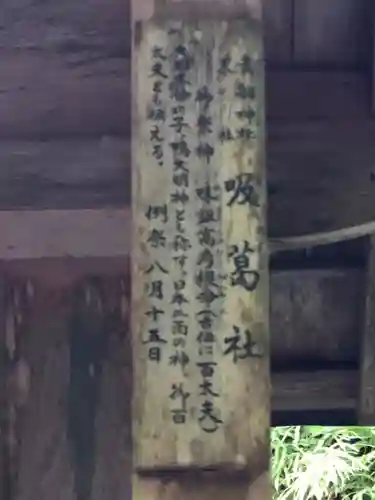 貴船神社
末社
吸葛社
御祭神 味鉏高彦根命(古伝に百太夫)
大国主命の子、鴨大明神とも称す。日本二面の神、御百
太夫とも称える。
例祭 八月十五日